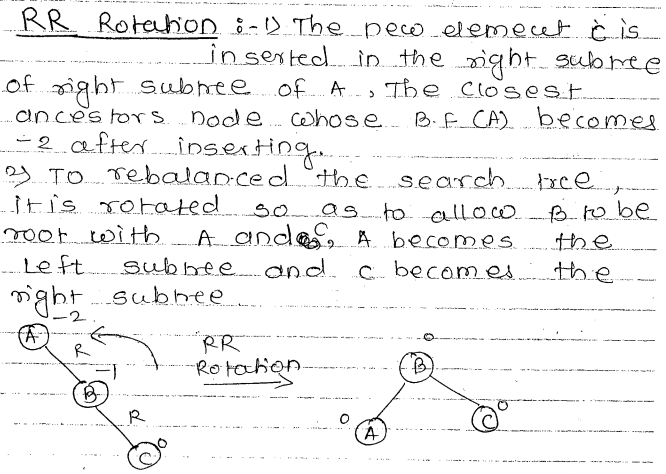 RR Rotation :-1) The new element c is
inserted in the right subtree
of right subtree of A, The closest
ancestors node whose B.F (A) becomes
-2 after inserting.
2) To rebalanced the search tree,
it is rotated so as to allow B to be
root with A and C, A becomes the
Left subtree and c becomes the
right subtree.
-2
A
R
-1
B
R
C 0
RR
Rotation
0
B
0
A
C 0